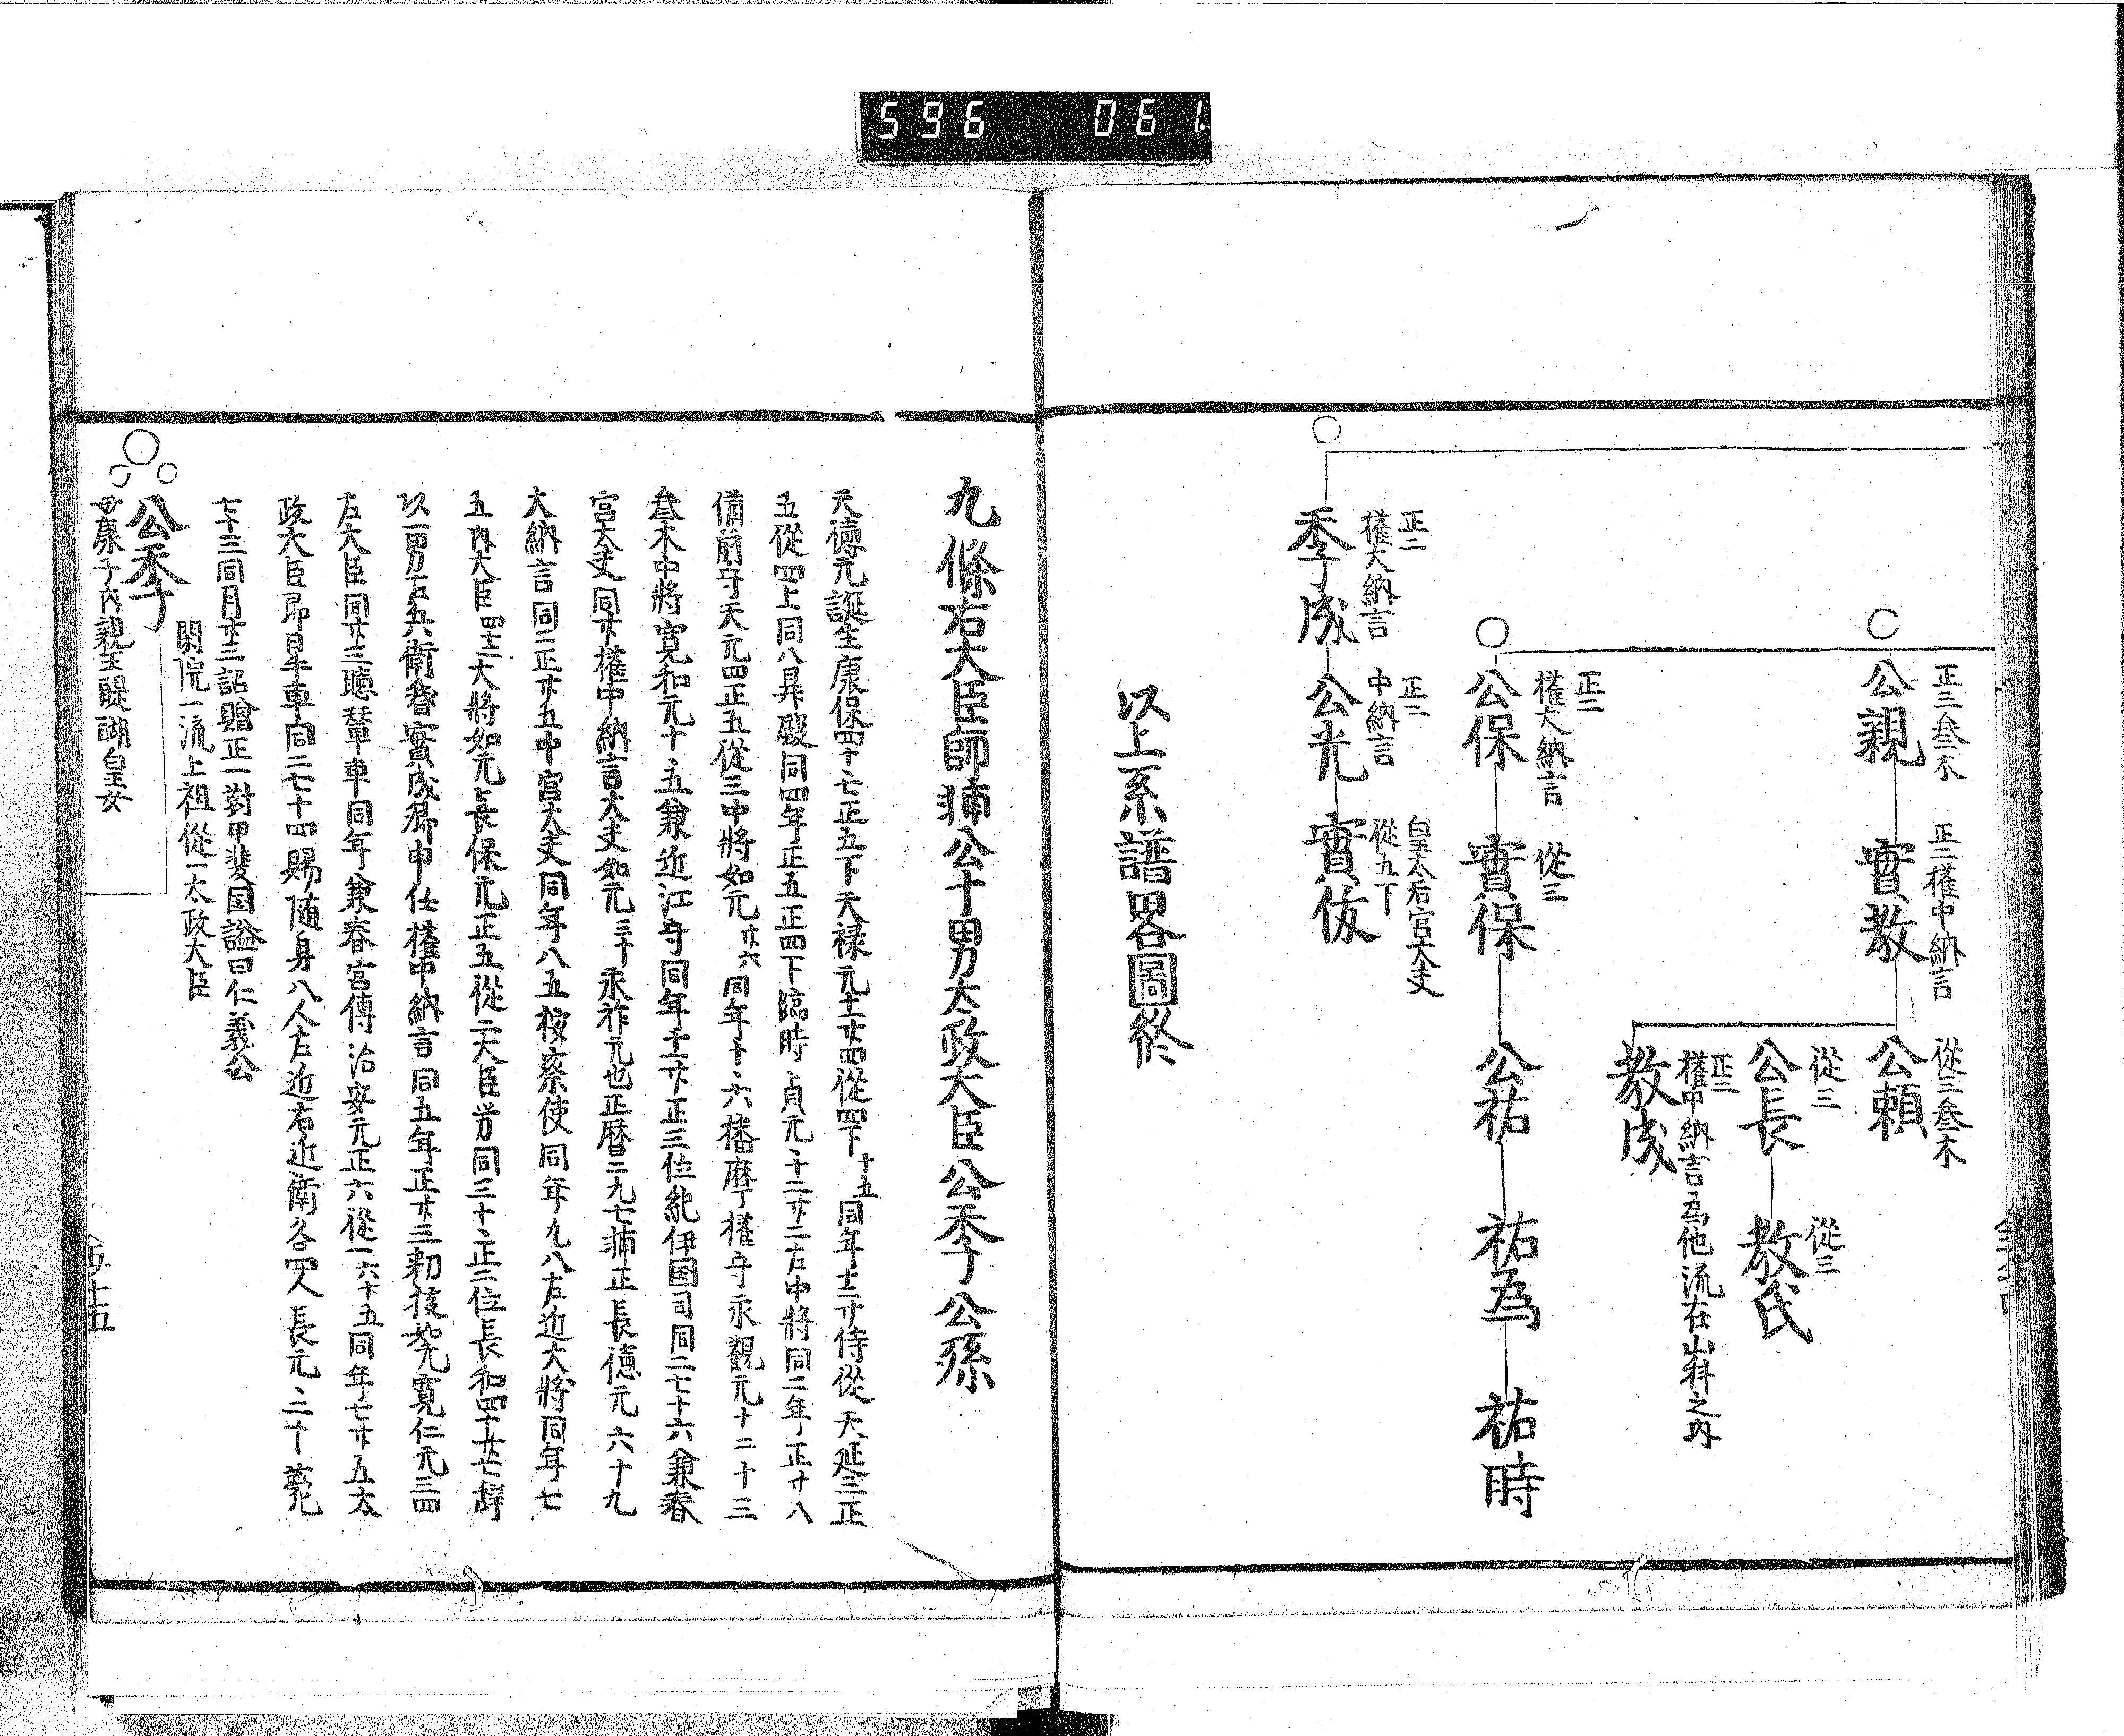 596 061
正三叅木
公親
正二權中納言
實教
從三叅木
公頼
從三
公長
從三
教氏
正二
權中納言為他流在山科之内
教成
正二
權大納言
公保
從三
實保
公祐
祐為
祐時
正二
權大納言
季成
正二
中納言
公光
皇太后宮大夫
從五下
實俊
以上系譜畧圖終
九條右大臣師輔公十男太政大臣公季公孫
天德元誕生康保四十七正五下天禄元十二廿四從四下十五同年十二廿侍從天延三正
五從四上同八昇殿同四年正五正四下臨時貞元十二廿二右中將同二年正廿八
備前守天元四正五從三中將如元廿六同年十六播磨权權守永觀元十二十三
叅木中將寛和元十五兼近江守同年十二廿正三位紀伊国司同二七十六兼春
宮大夫同廿權中納言大夫如元三十永祚元也正暦二九七輔正長徳元六十九
大納言同二正廿五中宮大夫同年八五按察使同年九八左近大將同年七
五内大臣四十二大將如元長保元正五從二大臣労同三十正二位長和四十廿七辞
以一男右兵衛督實成卿申任權中納言同五年正廿三勅授如元寛仁元三四
右大臣同廿三聴輦車同年兼春宮傳治安元正六從一六十五同年七廿五太
政大臣即日牛車同二七十四賜随身八人左近右近衛各四人長元二十薨
七十三同月廿二詔贈正一封甲斐国謚曰仁義公
閑院一流上祖從一太政大臣
公季
母康子内親王醍醐皇女